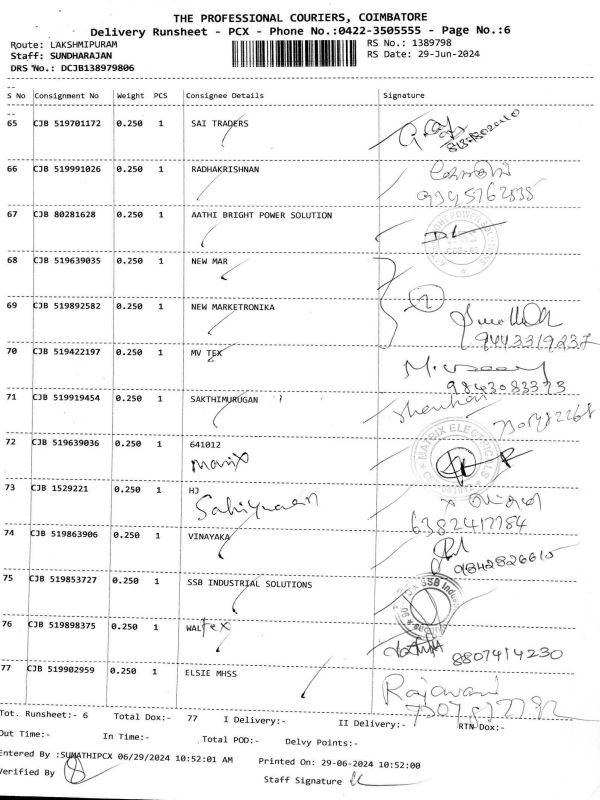 THE PROFESSIONAL COURIERS, COIMBATORE
Delivery Runsheet - PCX - Phone No.:0422-3505555 - Page No.:6
Route: LAKSHMIPURAM RS No.: 1389798
Staff: SUNDHARAJAN RS Date: 29-Jun-2024
DRS No.: DCJB138979806
S No Consignment No Weight PCS Consignee Details Signature
65 CJB 519701172 0.250 1 SAI TRADERS
66 CJB 519991026 0.250 1 RADHAKRISHNAN
67 CJB 80281628 0.250 1 AATHI BRIGHT POWER SOLUTION
68 CJB 519639035 0.250 1 NEW MAR
69 CJB 519892582 0.250 1 NEW MARKETRONIKA
9443319237
70 CJB 519422197 0.250 1 MV TEX
9843083373
71 CJB 519919454 0.250 1 SAKTHIMURUGAN
72 CJB 519639036 0.250 1 641012
MATRIX ELECTRIC
73 CJB 1529221 0.250 1 HJ
6382417784
74 CJB 519863906 0.250 1 VINAYAKA
9842826610
75 CJB 519853727 0.250 1 SSB INDUSTRIAL SOLUTIONS
SSB
76 CJB 519898375 0.250 1 WALtex
8807414230
77 CJB 519902959 0.250 1 ELSIE MHSS
Tot. Runsheet:- 6 Total Dox:- 77 I Delivery:- II Delivery:- RTN Dox:-
Out Time:- In Time:- Total POD:- Delvy Points:-
Entered By :SUMATHIPCX 06/29/2024 10:52:01 AM Printed On: 29-06-2024 10:52:00
Verified By Staff Signature